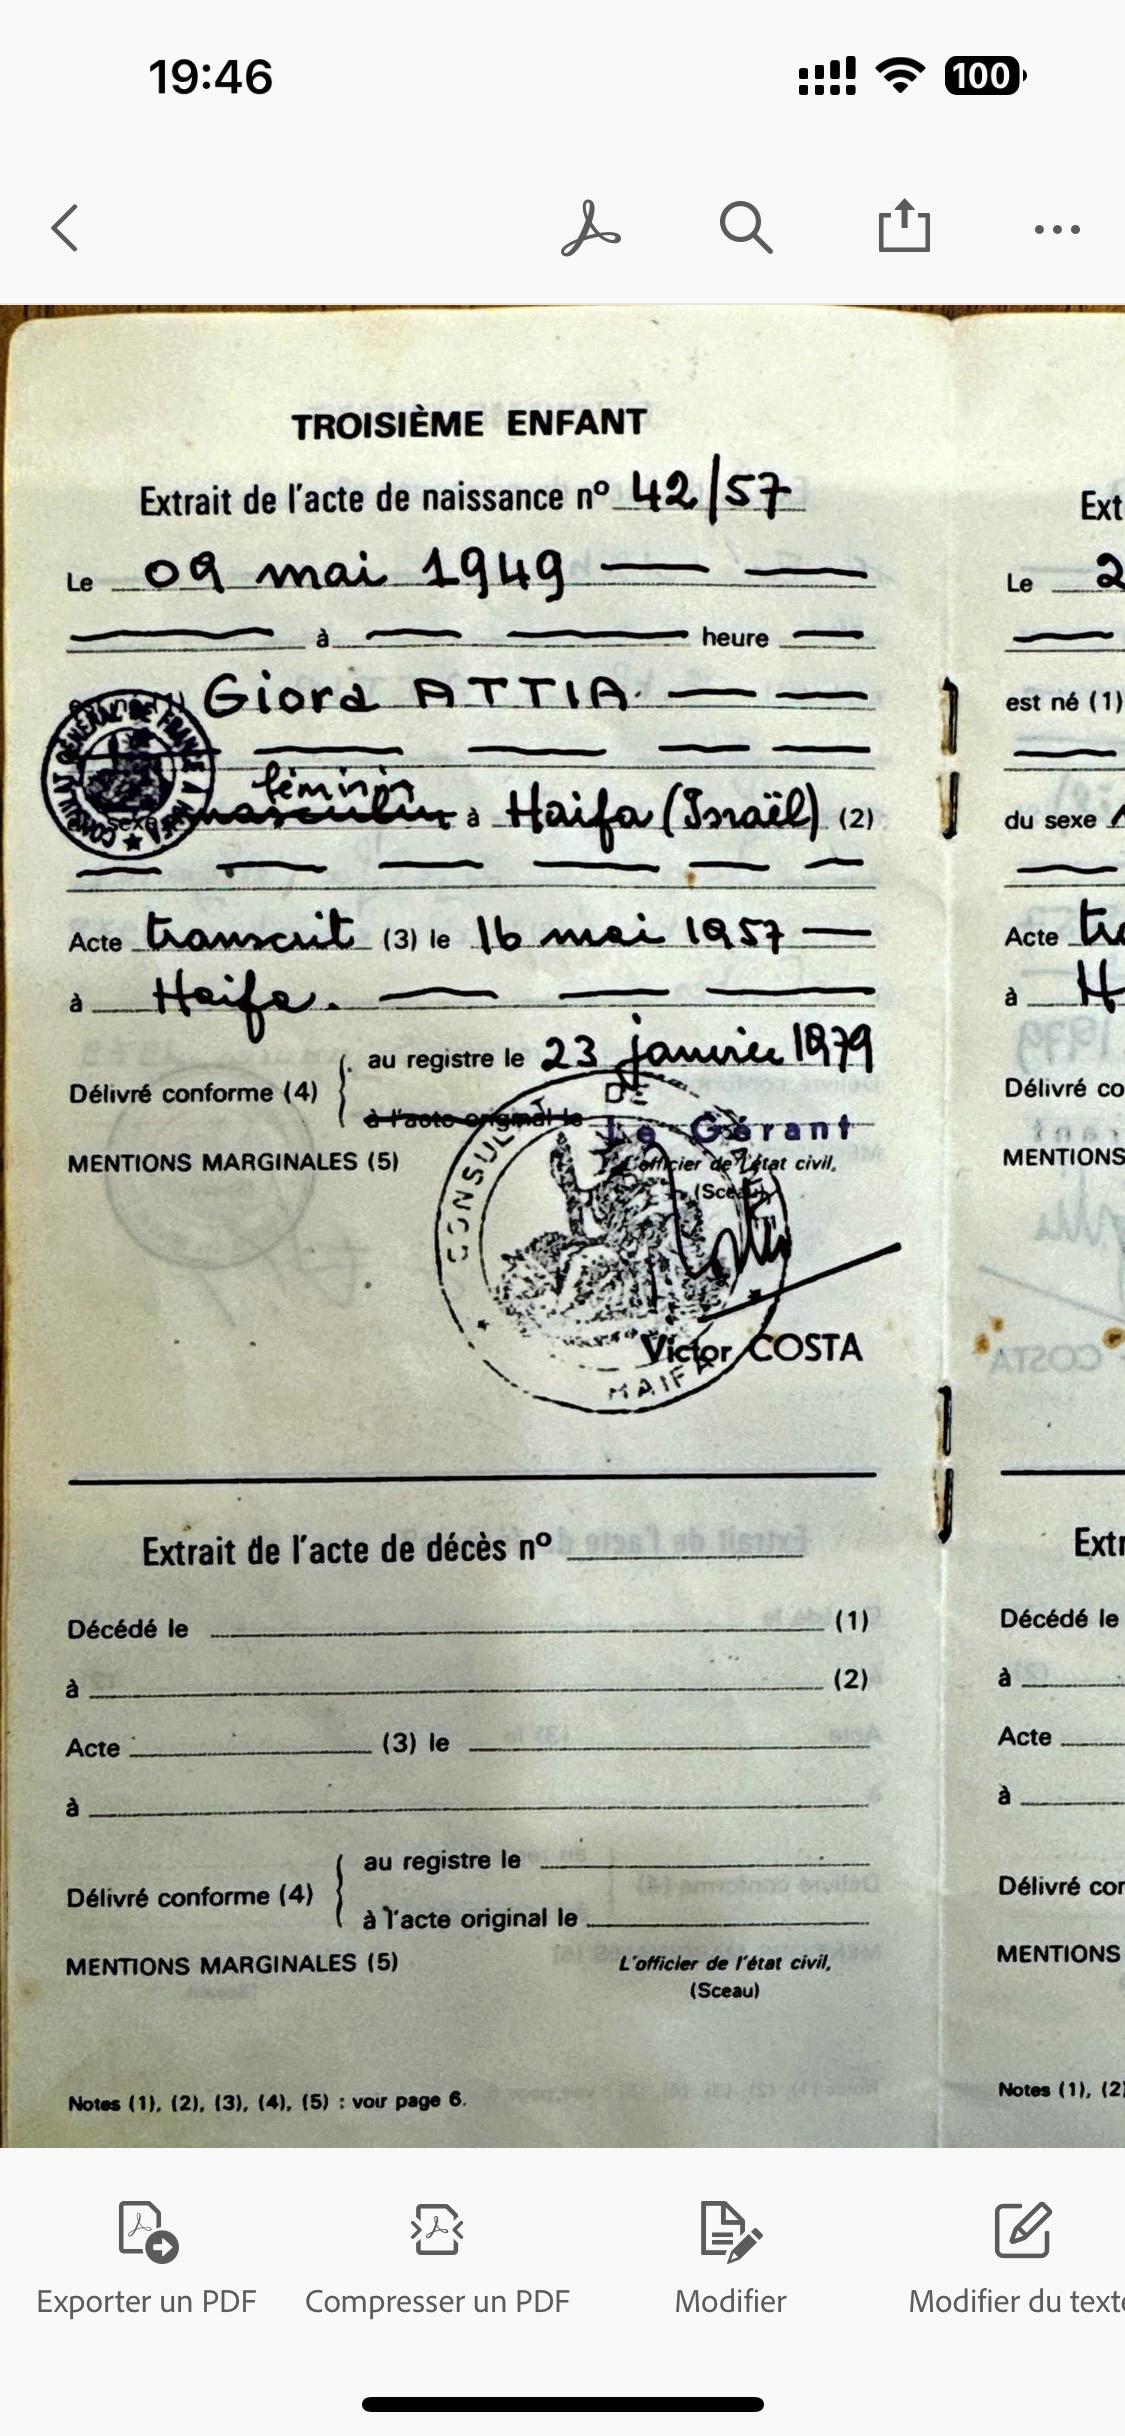 19:46
100
TROISIÈME ENFANT
Extrait de l'acte de naissance nº 42/57
Le 09 mai 1949
à heure
Giora ATTIA
féminin
masculin à Haifa (Israël) (2)
Acte transcrit (3) le 16 mai 1957
à Haifa.
Délivré conforme (4)
au registre le 23 janvier 1979
à l'acte original le
Le Gérant
MENTIONS MARGINALES (5)
L'officier de l'état civil,
(Sceau)
CONSULAT DE
HAIFA
CONSULAT GÉNÉRAL DE FRANCE A
sexe
Victor COSTA
Extrait de l'acte de décès nº
Décédé le (1)
à (2)
Acte (3) le
à
Délivré conforme (4)
au registre le
à l'acte original le
MENTIONS MARGINALES (5)
L'officier de l'état civil,
(Sceau)
Notes (1), (2), (3), (4), (5) : voir page 6.
Ext
Le 2
est né (1)
du sexe
Acte
à H
Délivré co
MENTIONS
Extr
Décédé le
à
Acte
à
Délivré cor
MENTIONS
Notes (1), (2)
Exporter un PDF
Compresser un PDF
Modifier
Modifier du texte